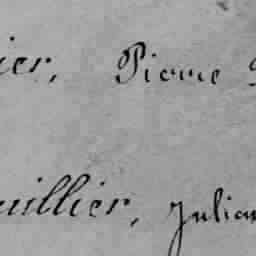 ier, Pierre
uillier, Julian